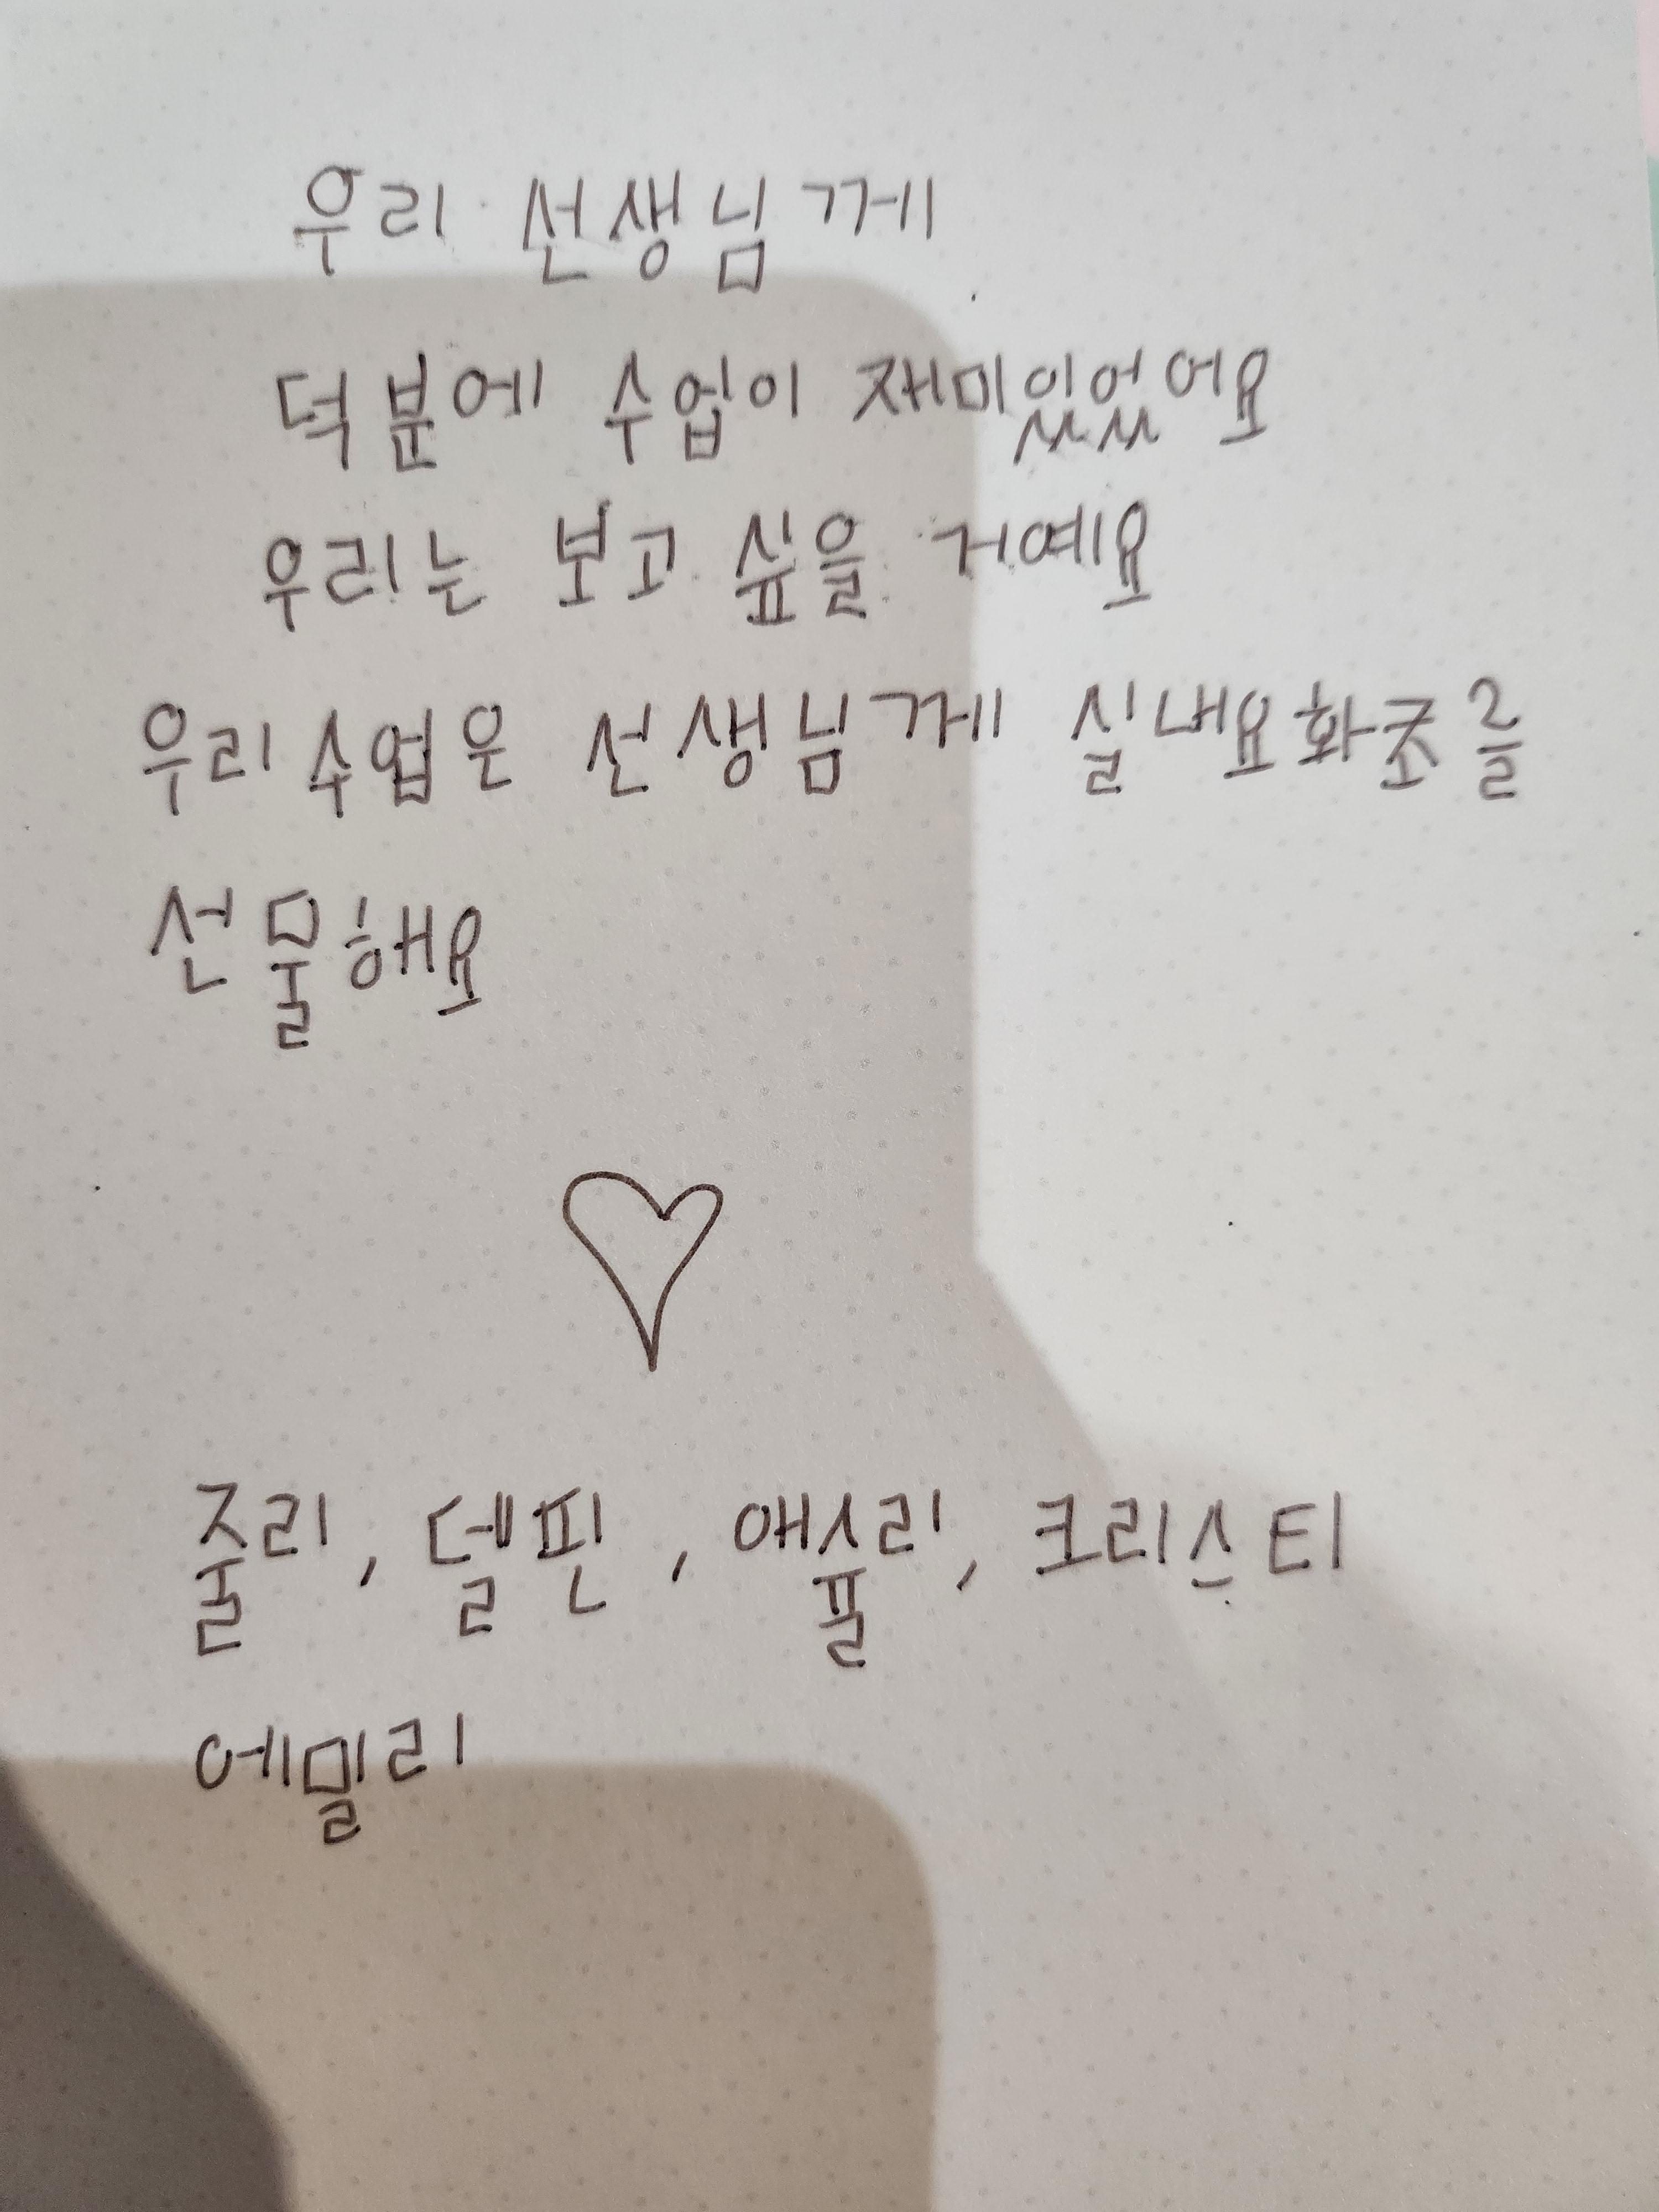 우리 선생님께
덕분에 수업이 재미있었어요
우리는 보고 싶을 거예요
우리 수업은 선생님께 실내요화초를
선물해요
줄리, 델핀, 애슐리, 크리스티
에밀리